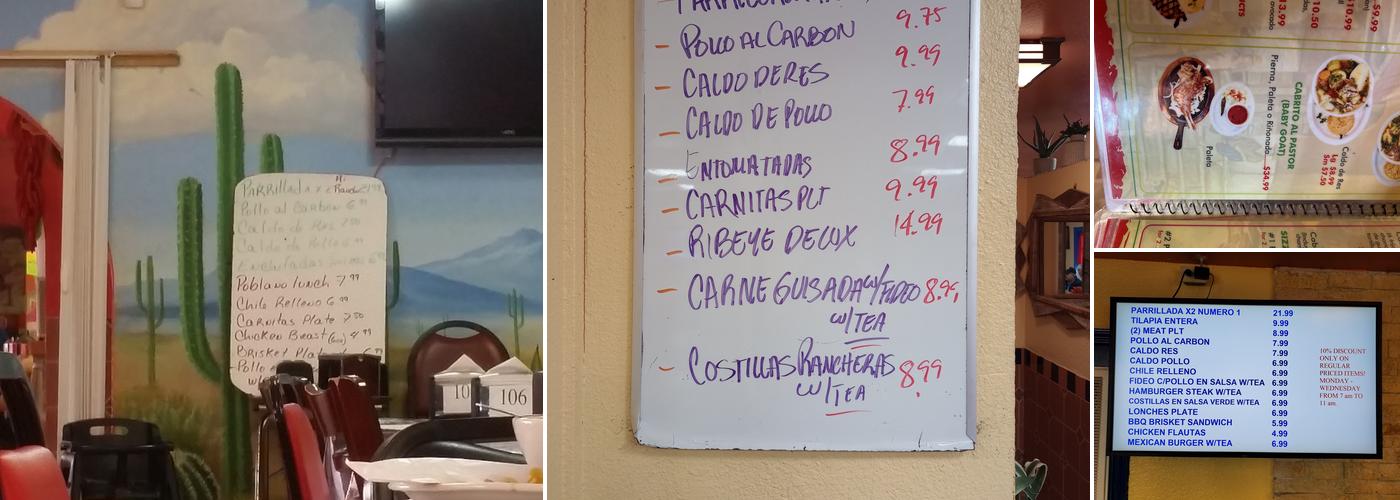 Pollo al Carbon 6.99
Caldo de Res 7.50
Caldo de Pollo 6.99
Enchiladas
Poblano lunch 7.99
Chile Relleno 6.99
Carnitas Plate 7.50
Chicken Breast 4.99
Brisket
Pollo
10
106
9.75
- POLLO AL CARBON 9.99
- CALDO DE RES 7.99
- CALDO DE POLLO
- ENTOMATADAS 8.99
- CARNITAS PLT 9.99
- RIBEYE DELUX 14.99
- CARNE GUISADA W/FIDEO 8.99
W/TEA
- COSTILLAS RANCHERAS 8.99
W/TEA
CABRITO AL PASTOR
(BABY GOAT)
Pierna, Paleta o Riñonada $34.99
Paleta
Caldo de Res
Lg $8.99
Sm $7.50
PARRILLADA X2 NUMERO 1 21.99
TILAPIA ENTERA 9.99
(2) MEAT PLT 8.99
POLLO AL CARBON 7.99
CALDO RES 7.99
CALDO POLLO 6.99
CHILE RELLENO 6.99
FIDEO C/POLLO EN SALSA W/TEA 6.99
HAMBURGER STEAK W/TEA 6.99
COSTILLAS EN SALSA VERDE W/TEA 6.99
LONCHES PLATE 5.99
BBQ BRISKET SANDWICH 5.99
CHICKEN FLAUTAS 4.99
MEXICAN BURGER W/TEA 6.99
10% DISCOUNT
ONLY ON
REGULAR
PRICED ITEMS!
MONDAY -
WEDNESDAY
FROM 7 am TO
11 am.